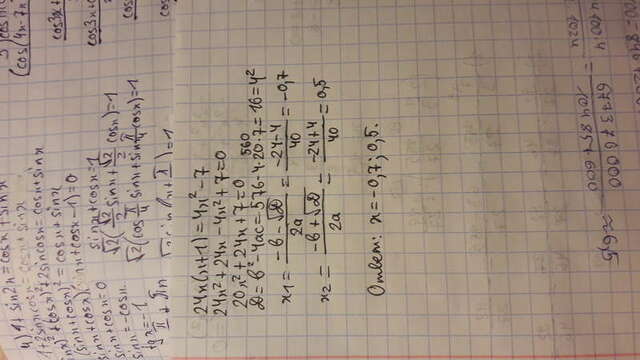 4) 1 + sin2x = cosx + sinx
1 + 2sinxcosx = cosx + sinx
sinx)² + (cosx)² + 2sinxcosx = cosx + sinx
(sinx + cosx)² = cosx + sinx
sinx + cosx)(sinx + cosx - 1) = 0
sinx + cosx = 0
sinx = -cosx
tgx = -1
sinx + cosx = 1
√2(√2/2 sinx + √2/2 cosx) = 1
√2(cos π/4 sinx + sin π/4 cosx) = 1
(cos(4x - 7x
cos3x +
cos3x +
24x(x+1) = 4x² - 7
24x² + 24x - 4x² + 7 = 0
20x² + 24x + 7 = 0
D = b² - 4ac = 576 - 4·20·7 = 16 = 4²
560
x₁ = (-b - √D)/2a = (-24-4)/40 = -0,7
x₂ = (-b + √D)/2a = (-24+4)/40 = 0,5
Ответ: x = -0,7; 0,5.
≈ 6,5